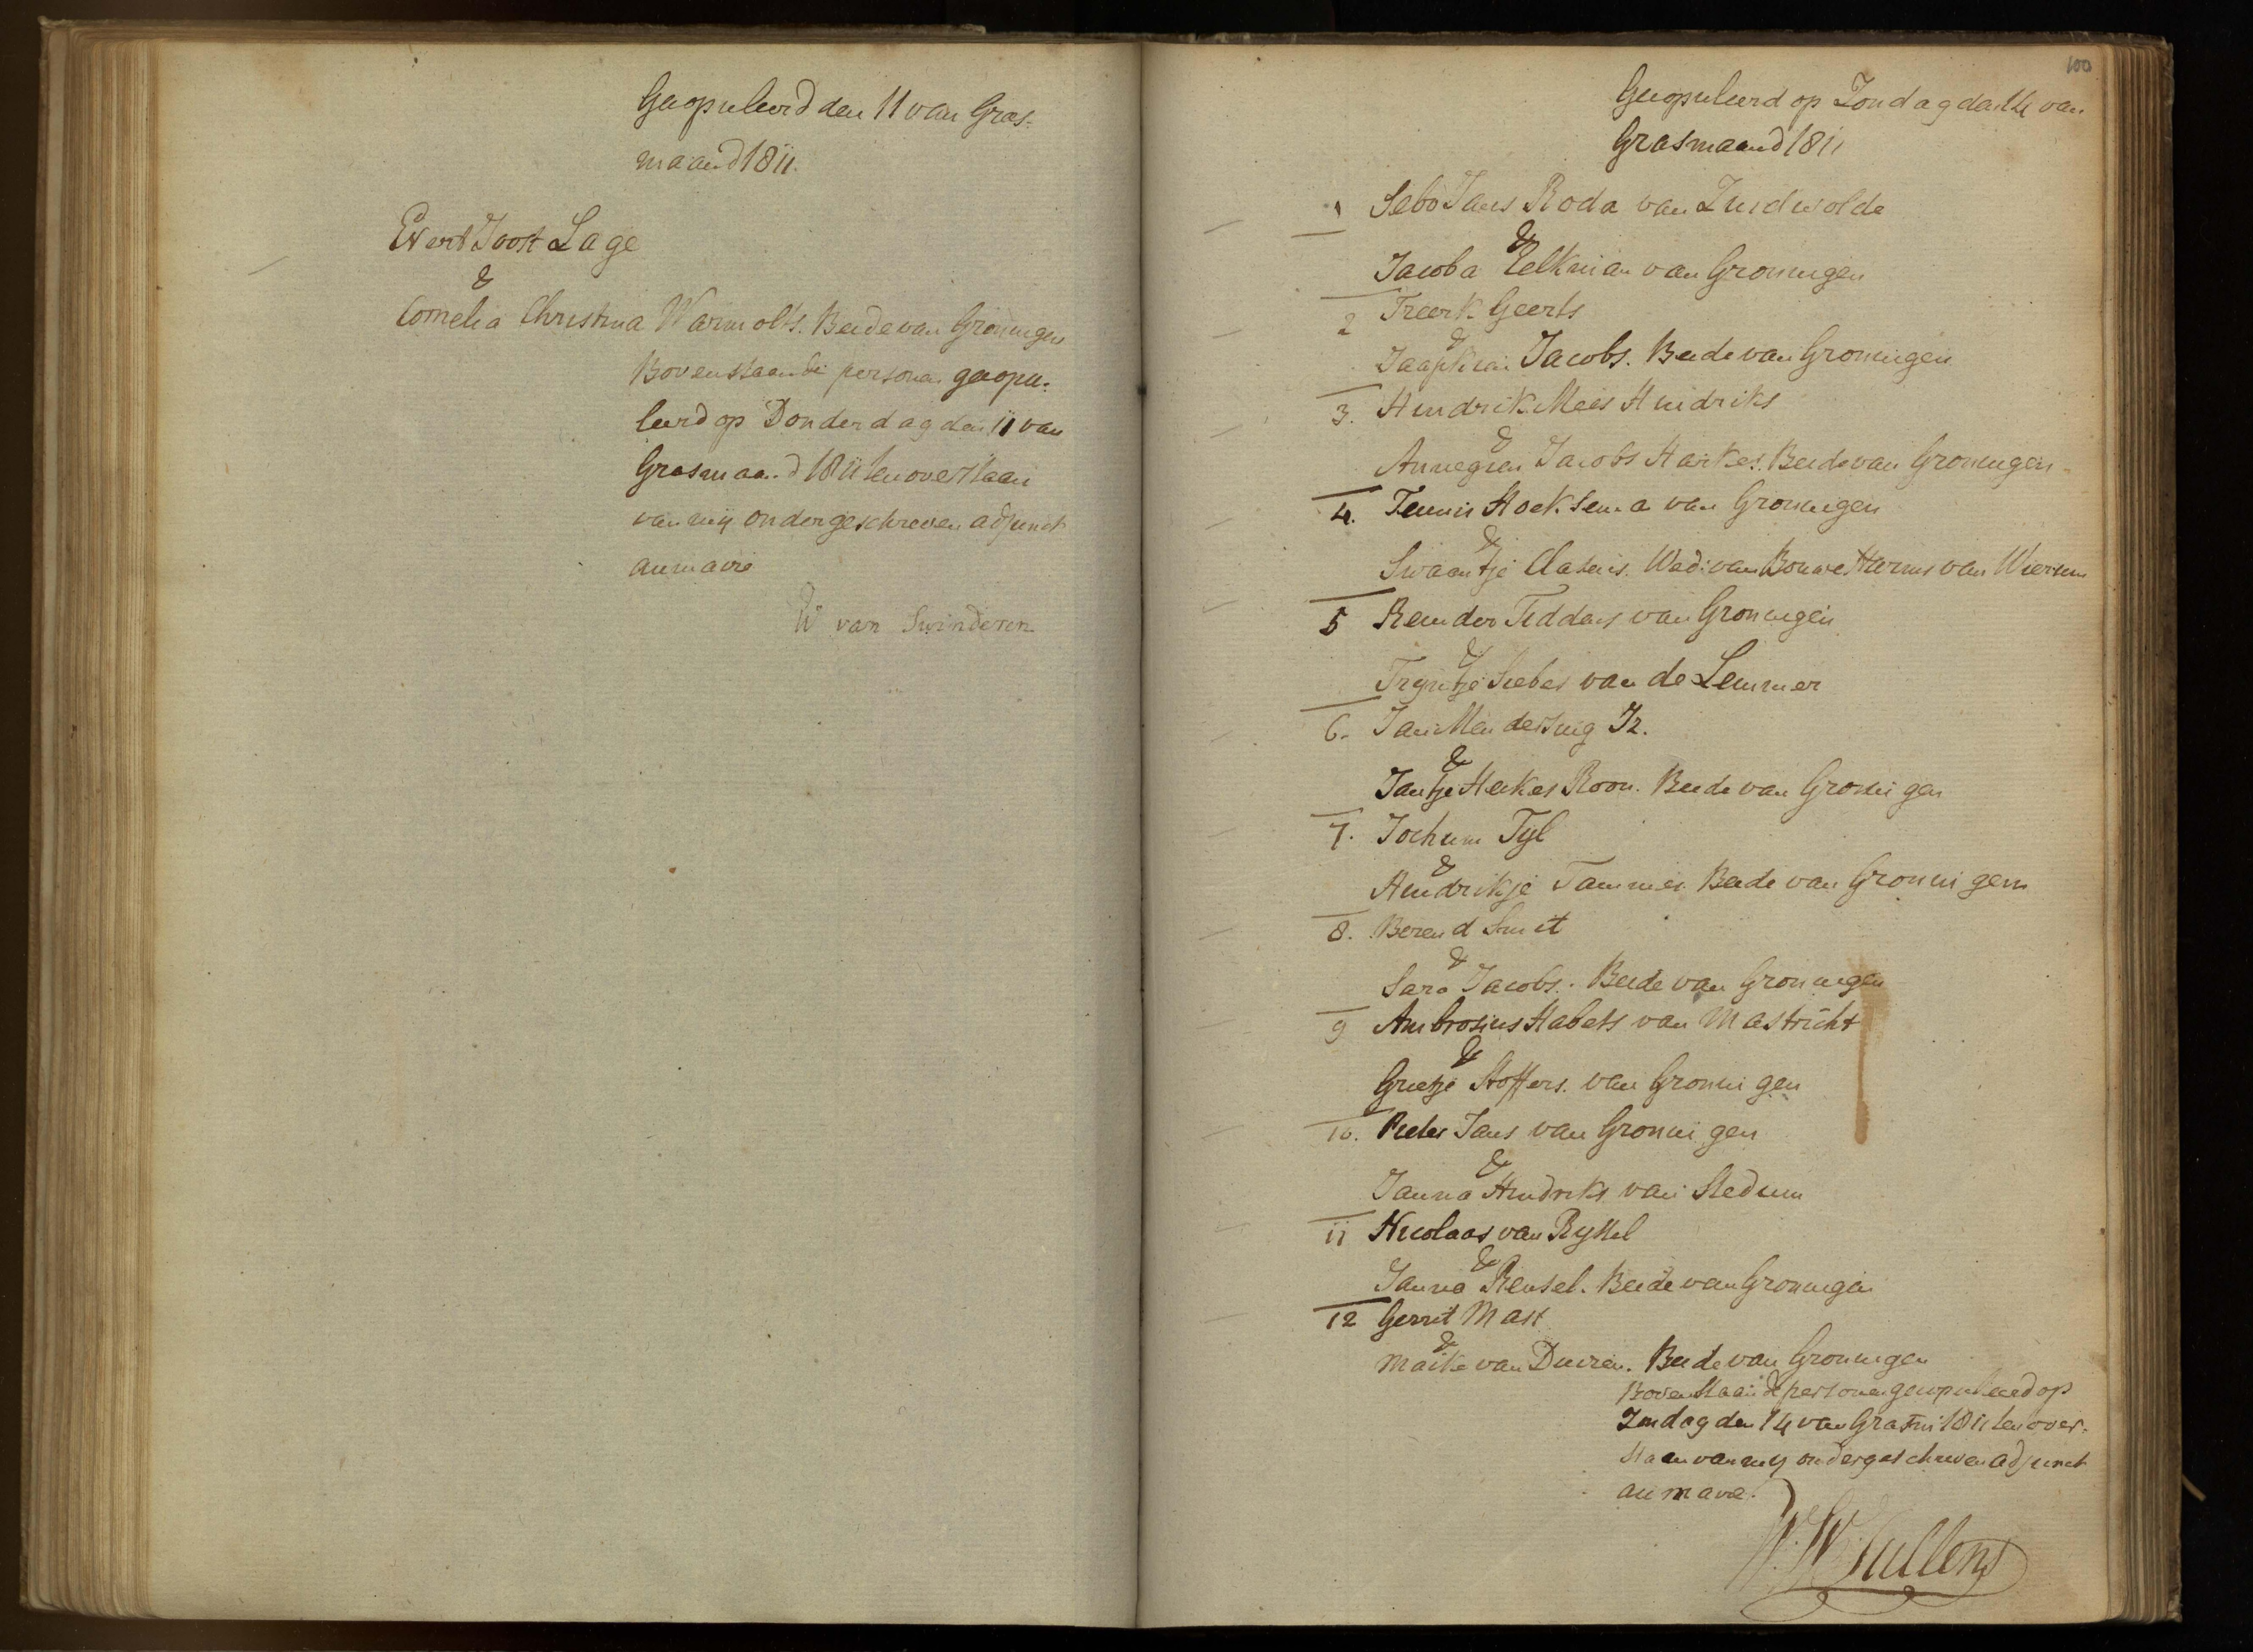 Gecopuleerd den 11 van Gras-
maand 1811.
Evert Joost Lage
&
Cornelia Christina Warmolts. Beide van Groningen
Bovenstaande personen gecopu-
leerd op Donderdag den 11 van
Grasmaand 1811 ten overstaan
van mij ondergeschreven adjunct
au maire
W van Swinderen
100
Gecopuleerd op Zondag den 14 van
Grasmaand 1811
1 Sebo Jans Roda van Zuidwolde
&
Jacoba Eelkman van Groningen
2 Freerk Geerts
&
Jaapkien Jacobs. Beide van Groningen
3. Hindrik Meis Hindriks
&
Annegien Jacobs Harkes. Beide van Groningen
4. Teunis Hoeksema van Groningen
&
Swaantje Clahsens. Wed: van Bouwe Harms van Wiersum
5 Reinder Tiddens van Groningen
&
Trijntje Siebes van de Lemmer
6. Jan Mendersing Jz.
&
Jantje Heikes Roon. Beide van Groningen
7. Jochum Tyl
&
Hindrikje Tammes. Beide van Groningen
8. Berend Smit
&
Sara Jacobs. Beide van Groningen
9 Ambrosius Habets van Mastricht
&
Grietje Stoffers. van Groningen
10. Pieter Jans van Groningen
&
Janna Hindriks van Stedum
11 Nicolaas van Ryssel
&
Janna Rensel. Beide van Groningen
12 Gerrit Mast
&
Maike van Duiren. Beide van Groningen
Bovenstaande personen gecopuleerd op
Zondag den 14 van Grasm: 1811 ten over-
staan van my ondergeschreven adjunct
au maire.